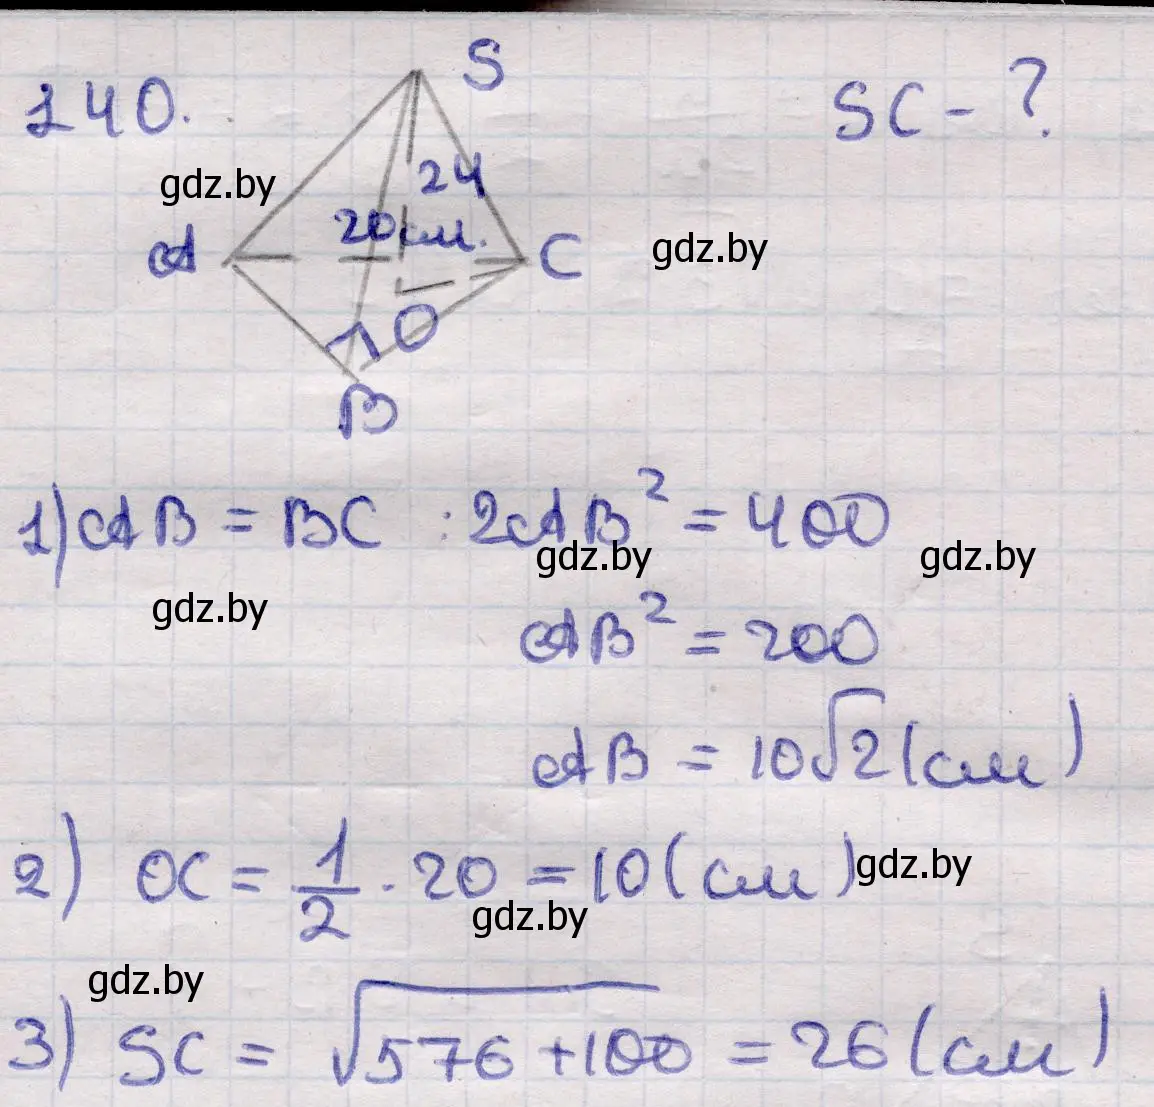 140.
S
SC - ?
gdz.by
24
20 см.
A
C
gdz.by
O
B
1) AB = BC : 2AB² = 400
gdz.by
gdz.by
gdz.by
AB² = 200
AB = 10√2 (см)
2) OC = 1/2 · 20 = 10 (см)
gdz.by
gdz.by
gdz.by
3) SC = √576 + 100 = 26 (см)